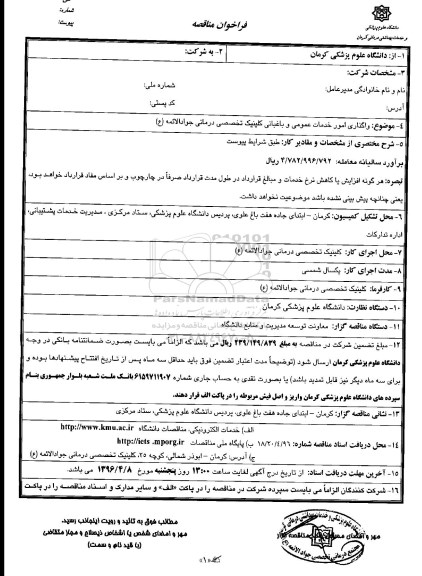 شماره:
پیوست:
دانشگاه علوم پزشکی
و خدمات بهداشتی درمانی کرمان
فراخوان مناقصه
۱- از: دانشگاه علوم پزشکی کرمان
۲- به شرکت:
۳- مشخصات شرکت:
نام و نام خانوادگی مدیرعامل:
شماره ملی:
آدرس:
کد پستی:
۴- موضوع: واگذاری امور خدمات عمومی و باغبانی کلینیک تخصصی درمانی جوادالائمه (ع)
۵- شرح مختصری از مشخصات و مقادیر کار: طبق شرایط پیوست
برآورد سالیانه معامله: ۴/۷۸۲/۹۹۶/۷۹۲ ریال
تبصره: هر گونه افزایش یا کاهش نرخ خدمات و مبالغ قرارداد در طول مدت قرارداد صرفاً در چارچوب و بر اساس مفاد قرارداد خواهد بود.
یعنی چنانچه پیش بینی نشده باشد موضوعیت نخواهد داشت.
۶- محل تشکیل کمیسیون: کرمان – ابتدای جاده هفت باغ علوی، پردیس دانشگاه علوم پزشکی، ستاد مرکزی ، مدیریت خدمات پشتیبانی،
اداره تدارکات
۷- محل اجرای کار: کلینیک تخصصی درمانی جوادالائمه (ع)
۸- مدت اجرای کار: یکسال شمسی
۹- کارفرما: کلینیک تخصصی درمانی جوادالائمه (ع)
۱۰- دستگاه نظارت: دانشگاه علوم پزشکی کرمان
۱۱- دستگاه مناقصه گزار: معاونت توسعه مدیریت و منابع دانشگاه
۱۲- مبلغ تضمین شرکت در مناقصه به مبلغ ۲۳۹/۱۴۹/۸۳۹ ریال می باشد که الزاماً می بایست بصورت ضمانتنامه بانکی در وجه
دانشگاه علوم پزشکی کرمان ارسال شود (توضیحاً مدت اعتبار تضمین فوق باید حداقل سه ماه پس از تاریخ افتتاح پیشنهادها بوده و
برای سه ماه دیگر نیز قابل تمدید باشد) یا بصورت نقدی به حساب جاری شماره ۶۱۵۹۷۱۱۹۰۷ بانک ملت شعبه بلوار جمهوری بنام
سپرده های دانشگاه علوم پزشکی کرمان واریز و اصل فیش مربوطه را در پاکت الف قرار دهند.
۱۳- نشانی مناقصه گزار: کرمان – ابتدای جاده هفت باغ علوی، پردیس دانشگاه علوم پزشکی، ستاد مرکزی
الف) خدمات الکترونیکی، مناقصات دانشگاه http://www.kmu.ac.ir
۱۴- محل دریافت اسناد مناقصه شماره: ۱۸/۲۰/۴/۹۶ ب) پایگاه ملی مناقصات http://iets .mporg.ir
ج) آدرس: کرمان – ابوذر شمالی، کوچه ۲۵، کلینیک تخصصی درمانی جوادالائمه (ع)
۱۵- آخرین مهلت دریافت اسناد: از تاریخ درج آگهی لغایت ساعت ۱۳:۰۰ روز پنجشنبه مورخ ۱۳۹۶/۴/۸ می باشد.
۱۶- شرکت کنندگان الزاماً می بایست سپرده شرکت در مناقصه را در پاکت «الف» و سایر مدارک و اسناد مناقصه را در پاکت
مطالب فوق به تائید و رویت اینجانب رسید.
مهر و امضای شخص یا اشخاص ذیصلاح و مجاز متقاضی
(با قید نام و سمت)
مهر و امضای
مناقصه گزار
«۱»
ParsNamadData